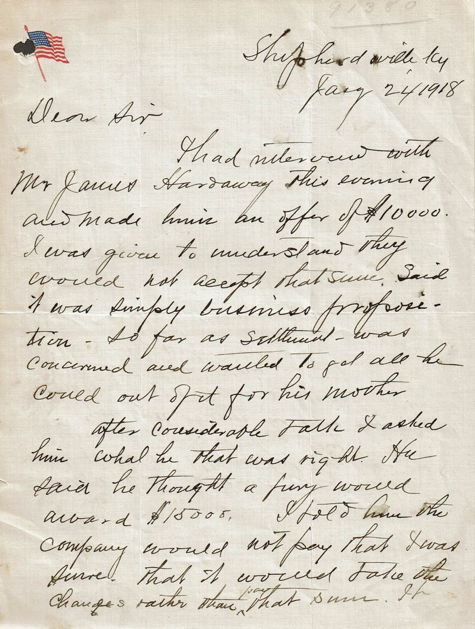 91380
Shepherdsville Ky
Jany 24 1918
Dear Sir
I had interview with
Mr James Hardaway this evening
and made him an offer of $10000.
I was given to understand they
would not accept that sum. Said
it was simply business proposi-
tion - so far as settlement - was
concerned and wanted to get all he
could out of it for his mother
after considerable talk I asked
him what he that was right. He
said he thought a jury would
award $15000. I told him the
company would not pay that I was
sure. that it would take the
changes rather than pay that sum. It